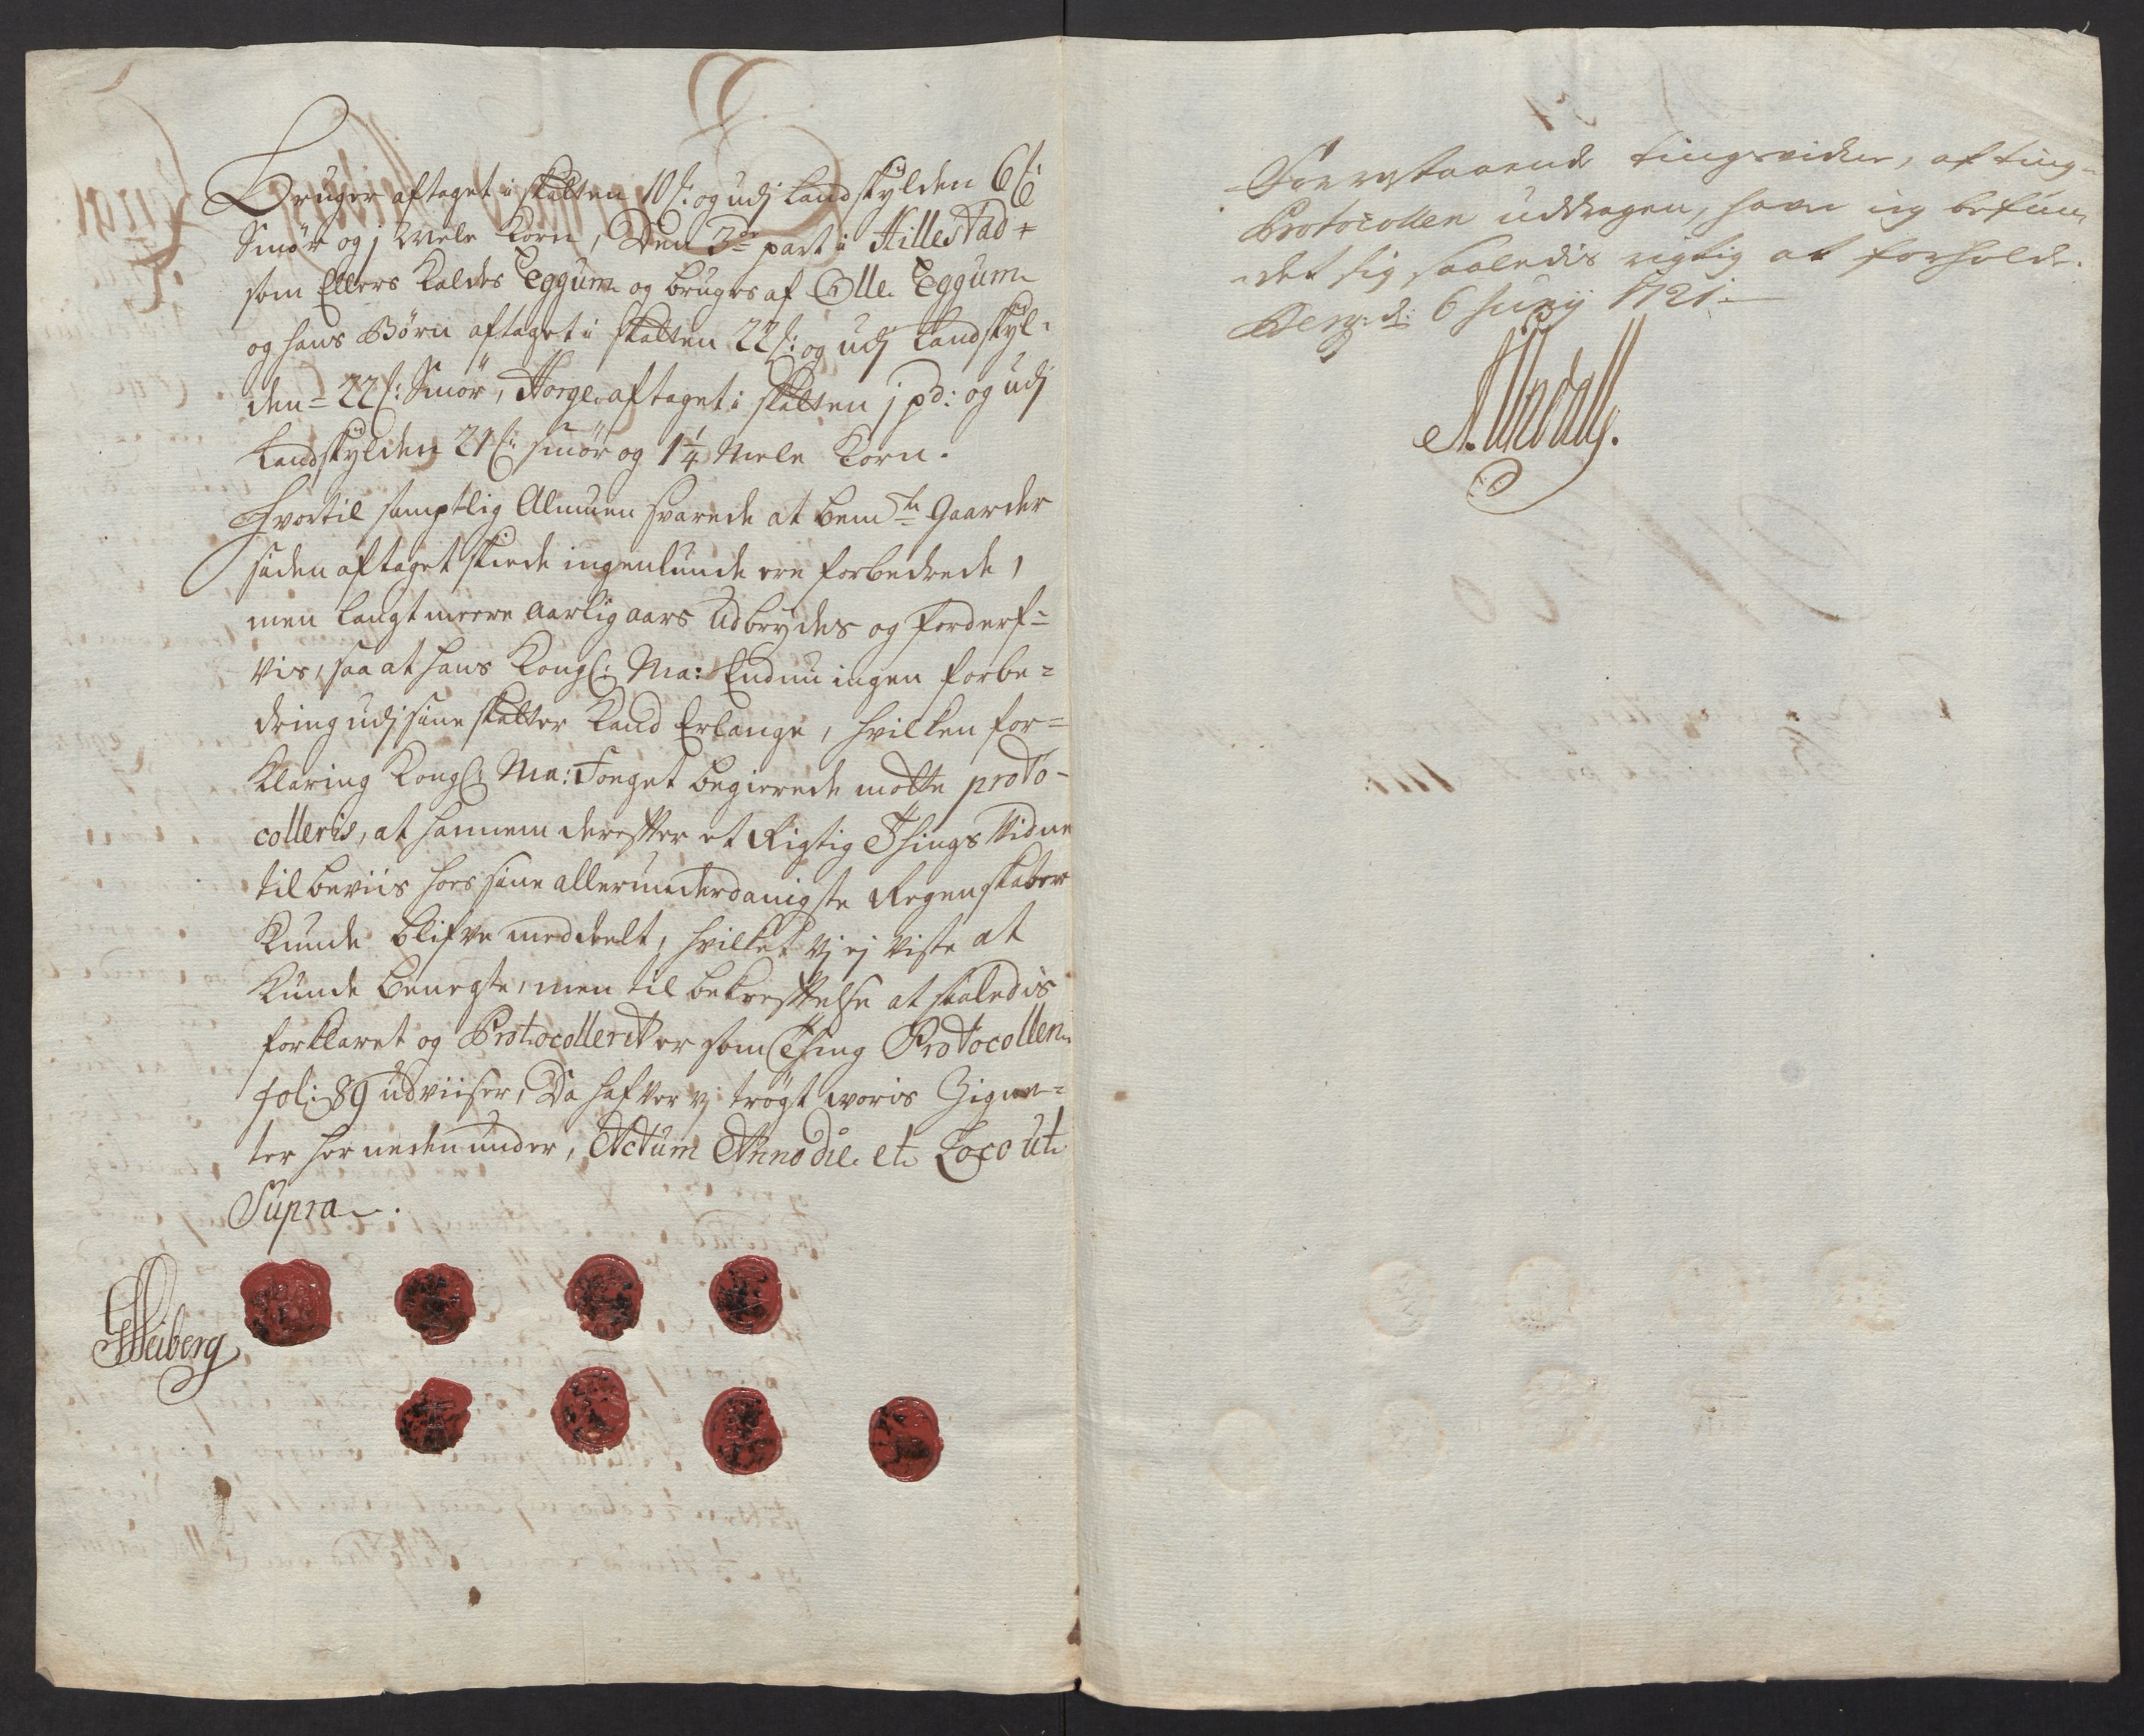 Bruger aftaget i skatten 10 ß: og udj Landskylden 6 ß
Smør og j Mele Korn, Den 3de part i Hillestad +
som Ellers Kaldes Eggum og bruges af Olle Eggum
og hans Børn aftaget i skatten 22 ß: og udj Landskyl-
den = 22 ß: Smør, Horge aftaget i skatten j pd: og udj
Landskylden 21 ß: smør og 1 1/4 Mele Korn.
Hvortil samptlig Almuen svarede at bemte Gaarder
siden aftaget skiede ingenlunde ere forbedrede,
men langt meere aarlig aars Udbrydes og forderf-
vis, saa at hans Kongl: Ma: Endnu ingen forbe-
dring udj sine skatter Kand Erlange, hvilken for-
Klaring Kongl: Ma: Foeget begierede motte proto-
colleris, at hannem derefter et Rigtig Things Vidne
til beviis hos sine allerunderdanigste Regenskaber
Kunde blifve meddeelt, hvilket vj ej viste at
Kunde benegte, men til bekreftelse at saaledis
forklaret og Protocollerit er som Thing Protocollen
fol: 89 udviiser, Da hafver vj trøgt woris Zigne-
ter her neden under, Actum Anno die et Loco ut
Supra.
Heiberg
Foerestaaende tingsvidne, af ting-
Protocollen uddragen, haver ieg befun-
det sig saaledis rigtig at forholde.
Berg: d: 6 Junij 1721